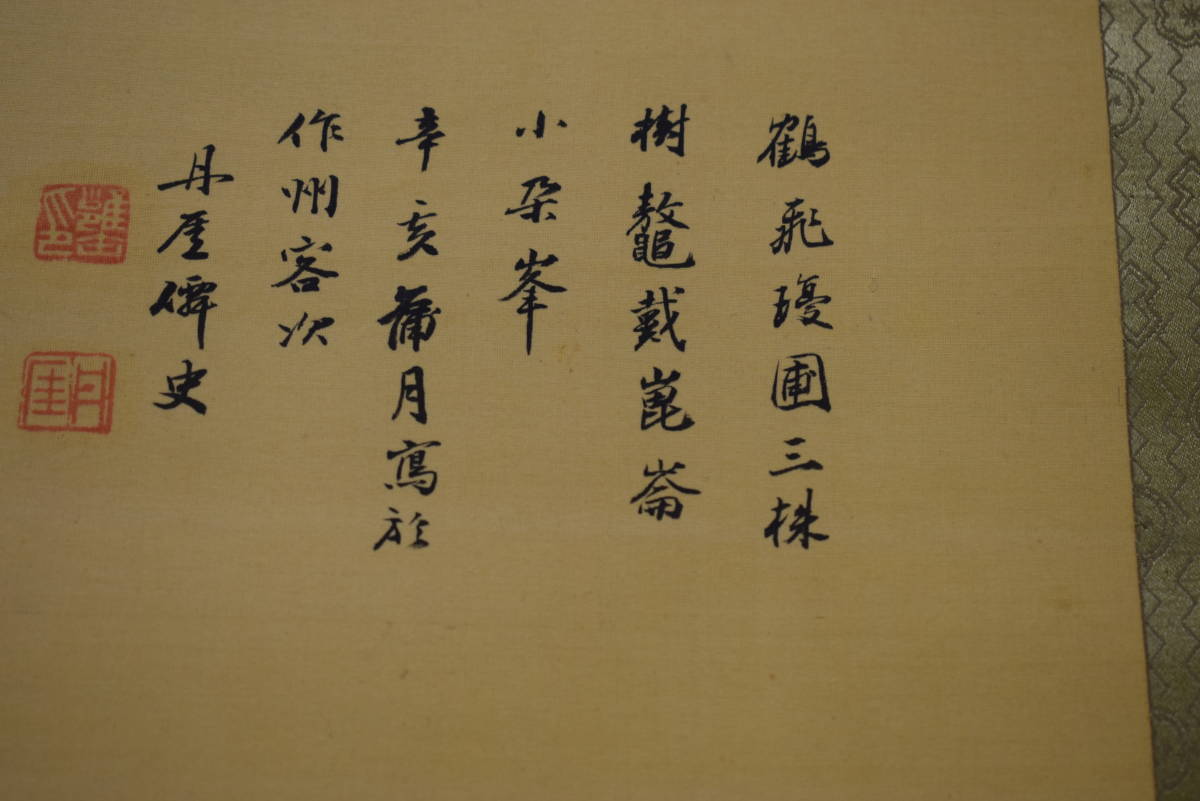 鶴飛瓊圃三株
樹鼇戴崑崙
小朶峯
辛亥蒲月寫於
作州客次
丹厓僊史